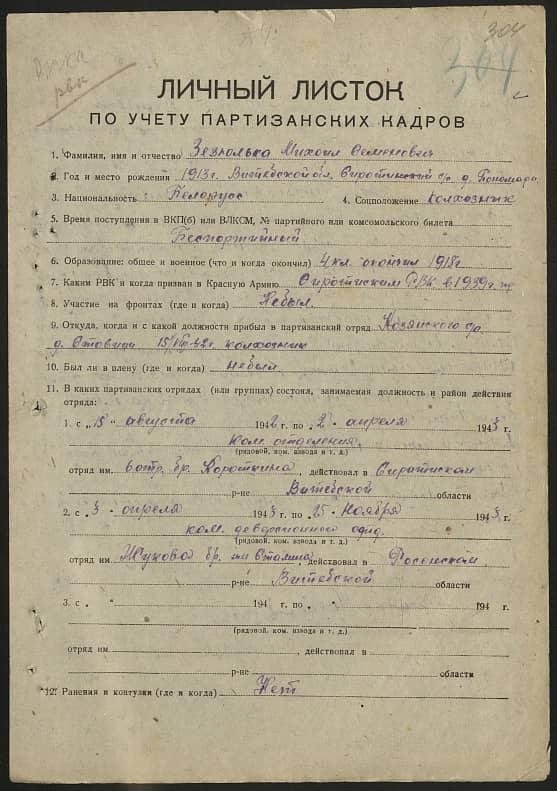 304
304
рвк
ЛИЧНЫЙ ЛИСТОК
ПО УЧЕТУ ПАРТИЗАНСКИХ КАДРОВ
1. Фамилия, имя и отчество Зезюлька Михаил Семенович
2. Год и место рождения 1913г. Витебской обл, Сиротинский р. д. Пономари
3. Национальность Белорусс 4. Соцположение колхозник
5. Время поступления в ВКП(б) или ВЛКСМ, № партийного или комсомольского билета
Беспартийный
6. Образование: общее и военное (что и когда окончил) 4 кл. окончил 1918г
7. Каким РВК и когда призван в Красную Армию Сиротиским РВК в 1939г.
8. Участие на фронтах (где и когда) Небыл.
9. Откуда, когда и с какой должности прибыл в партизанский отряд Козянского ср.
д. Стовици 15/VIII-42г. колхозник
10. Был ли в плену (где и когда) небыл
11. В каких партизанских отрядах (или группах) состоял, занимаемая должность и район действия
отряда:
1. с „15“ августа 1942 г. по „2“ апреля 1943 г.
ком. отделения.
(рядовой, ком. взвода и т. д.)
отряд им. 6 отр. бр. Короткина, действовал в Сиротиском
р-не Витебской области
2. с „3“ апреля 1943 г. по „25“ Ноября 1943 г.
ком. деверсионного
(рядовой, ком. взвода и т. д.)
отряд им Жукова бр. им Сталина, действовал в Росонском
р-не Витебской области
3. с „ 194 г. по „ 194 г.
(рядовой, ком. взвода и т. д.)
отряд им. , действовал в
р-не области
12. Ранения и контузии (где и когда) Нет